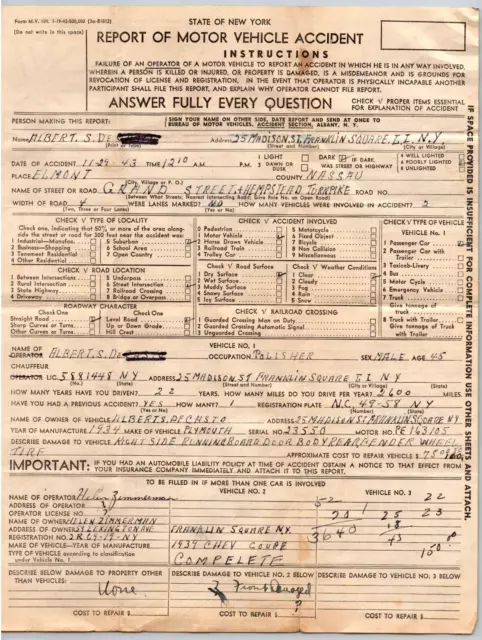 Form M.V. 104.
STATE OF NEW YORK
(Do not write in this space)
REPORT OF MOTOR VEHICLE ACCIDENT
INSTRUCTIONS
FAILURE OF AN OPERATOR OF A MOTOR VEHICLE TO REPORT AN ACCIDENT IN WHICH HE IS IN ANY WAY INVOLVED,
WHEREIN A PERSON IS KILLED OR INJURED, OR PROPERTY IS DAMAGED, IS A MISDEMEANOR AND IS GROUNDS FOR
REVOCATION OF LICENSE AND REGISTRATION. IN THE EVENT THAT OPERATOR IS PHYSICALLY INCAPABLE ANOTHER
PARTICIPANT SHALL FILE THIS REPORT, AND EXPLAIN WHY OPERATOR CANNOT FILE REPORT.
ANSWER FULLY EVERY QUESTION
CHECK √ PROPER ITEMS ESSENTIAL FOR EXPLANATION OF ACCIDENT
PERSON MAKING THIS REPORT:
SIGN YOUR NAME ON OTHER SIDE, DATE REPORT AND SEND AT ONCE TO
BUREAU OF MOTOR VEHICLES, ACCIDENT SECTION, ALBANY, N. Y.
Name ALBERT. S. DE Address 25 MADISON. ST. FRANKLIN SQUARE. L. I. N.Y
(Print or Type) (Street and Number) (City or Village)
DATE OF ACCIDENT 11-29 43 TIME 1210 A.M. P.M.
1 LIGHT
2 DAWN OR DUSK
DARK IF DARK, WAS STREET OR HIGHWAY
4 WELL LIGHTED
6 POORLY LIGHTED
8 UNLIGHTED
PLACE ELMONT COUNTY NASSAU
(City, Village or P. O.)
NAME OF STREET OR ROAD GRAND STREET & HEMPSTEAD TURNPIKE ROAD NO.
(Between What Streets; Nearest Intersecting Road; Give Pole No. on Open Road)
WIDTH OF ROAD WERE LANES MARKED? NO HOW MANY VEHICLES WERE INVOLVED IN ACCIDENT? 2
(Yes or No)
CHECK √ TYPE OF LOCALITY
Check one, indicating that 50%, or more of the area along-
side the street or road for 300 feet near the accident was:
1 Industrial—Manufac.
2 Business—Shopping
3 Tenement Residential
4 Other Residential
5 Suburban
6 School Area
7 Open Country
CHECK √ ACCIDENT INVOLVED
1 Pedestrian
1 Motor Vehicle
2 Horse Drawn Vehicle
3 Railroad Train
4 Trolley Car
5 Motorcycle
6 Fixed Object
7 Bicycle
8 Non Collision
9 Miscellaneous
CHECK √ TYPE OF VEHICLE
VEHICLE No. 1
1 Passenger Car
2 Passenger Car with Trailer
3 Taxicab-Livery
4 Bus
5 Motor Cycle
6 Emergency Vehicle
7 Truck
Give tonnage of truck
8 Truck with Trailer
Give tonnage of Truck with Trailer
CHECK √ ROAD LOCATION
1 Between Intersections
2 Rural Intersection
3 State Highway
4 Driveway
5 Underpass
6 Street Intersection
7 Railroad Crossing
8 Bridge or Overpass
Check √ Road Surface
1 Dry Surface
2 Wet Surface
3 Muddy Surface
4 Snowy Surface
5 Icy Surface
Check √ Weather Conditions
1 Clear
2 Cloudy
3 Fog
4 Rain
5 Snow
ROADWAY CHARACTER
Check One
Straight Road
Sharp Curves or Turns
Other Curves or Turns
Check One
Level Road
Up or Down Grade
Hill Crest
CHECK √ RAILROAD CROSSING
1 Guarded Crossing Man on Duty
2 Guarded Crossing Automatic Signal
3 Unguarded Crossing
IF SPACE PROVIDED IS INSUFFICIENT FOR COMPLETE INFORMATION USE OTHER SHEETS AND ATTACH.
VEHICLE NO. 1
NAME OF OPERATOR ALBERT. S. DE OCCUPATION POLISHER SEX MALE AGE 45
CHAUFFEUR
OPERATOR LIC. 5881448 NY ADDRESS 25 MADISON. ST FRANKLIN SQUARE L I N.Y
(No.) (State) (Street and Number) (City or Village) (State)
HOW MANY YEARS HAVE YOU DRIVEN? 22 YEARS. HOW MANY MILES DO YOU DRIVE PER YEAR? 2600 MILES.
HAVE YOU HAD A PREVIOUS ACCIDENT? YES HOW MANY? REGISTRATION PLATE N.C. 49-58 NY
(Yes or No) (Number) (State)
NAME OF OWNER OF VEHICLE ALBERT S. ADDRESS 25 MADISON ST. FRANKLIN SQUARE NY
YEAR OF MANUFACTURE 1934 MAKE OF VEHICLE PLYMOUTH SERIAL NO. 23550 MOTOR NO. PE 163185
DESCRIBE DAMAGE TO VEHICLE RIGHT SIDE RUNNING BOARD DOOR BODY REAR FENDER WHEEL
TIRE APPROXIMATE COST TO REPAIR VEHICLE $ 75
IMPORTANT: IF YOU HAD AN AUTOMOBILE LIABILITY POLICY AT TIME OF ACCIDENT OBTAIN A NOTICE TO THAT EFFECT FROM
YOUR INSURANCE COMPANY IMMEDIATELY AND ATTACH IT TO THIS REPORT.
TO BE FILLED IN IF MORE THAN ONE CAR IS INVOLVED
VEHICLE NO. 2 VEHICLE NO. 3
NAME OF OPERATOR Helen Zimmerman
ADDRESS OF OPERATOR
OPERATOR LICENSE NO. ?
NAME OF OWNER HELEN ZIMMERMAN
ADDRESS OF OWNER LEXINGTON AVE FRANKLIN SQUARE N.Y.
REGISTRATION NO. 2R 69-19-NY
MAKE OF VEHICLE—YEAR OF MANUFACTURE 1939 CHEV COUPE
TYPE OF VEHICLE according to classification under Vehicle No. 1 COMPELETE
22
25 23
18
3640
43
DESCRIBE BELOW DAMAGE TO PROPERTY OTHER THAN VEHICLES:
DESCRIBE DAMAGE TO VEHICLE NO. 2 BELOW
DESCRIBE DAMAGE TO VEHICLE NO. 3 BELOW
None
Front Damaged
?
COST TO REPAIR $
COST TO REPAIR $
COST TO REPAIR $